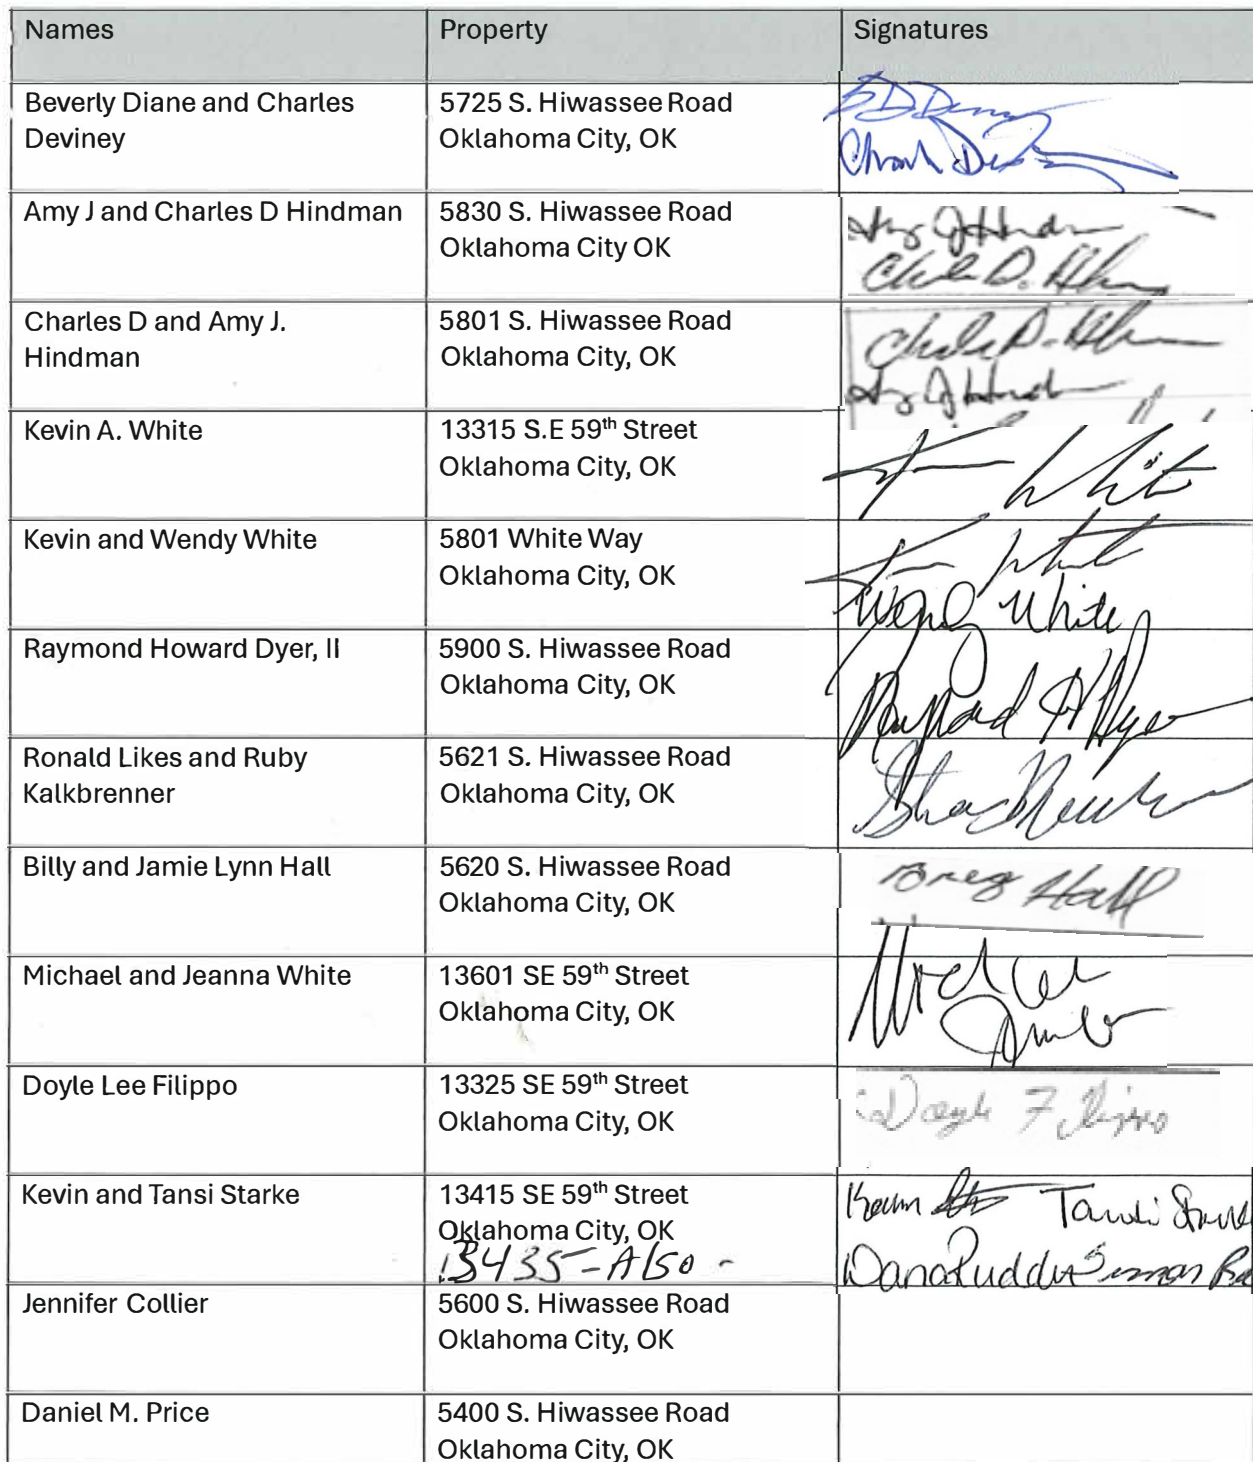 Names Property Signatures
Beverly Diane and Charles 5725 S. Hiwassee Road
Deviney Oklahoma City, OK
Amy J and Charles D Hindman 5830 S. Hiwassee Road
Oklahoma City OK
Charles D and Amy J. 5801 S. Hiwassee Road
Hindman Oklahoma City, OK
Kevin A. White 13315 S.E 59th Street
Oklahoma City, OK
White
Kevin and Wendy White 5801 White Way
Oklahoma City, OK
Wendy White
Raymond Howard Dyer, II 5900 S. Hiwassee Road
Oklahoma City, OK
Raymond H Dyer
Ronald Likes and Ruby 5621 S. Hiwassee Road
Kalkbrenner Oklahoma City, OK
Billy and Jamie Lynn Hall 5620 S. Hiwassee Road
Oklahoma City, OK
Greg Hall
Michael and Jeanna White 13601 SE 59th Street
Oklahoma City, OK
Doyle Lee Filippo 13325 SE 59th Street
Oklahoma City, OK
Doyle Filippo
Kevin and Tansi Starke 13415 SE 59th Street
Oklahoma City, OK
13435-Also-
Jennifer Collier 5600 S. Hiwassee Road
Oklahoma City, OK
Daniel M. Price 5400 S. Hiwassee Road
Oklahoma City, OK